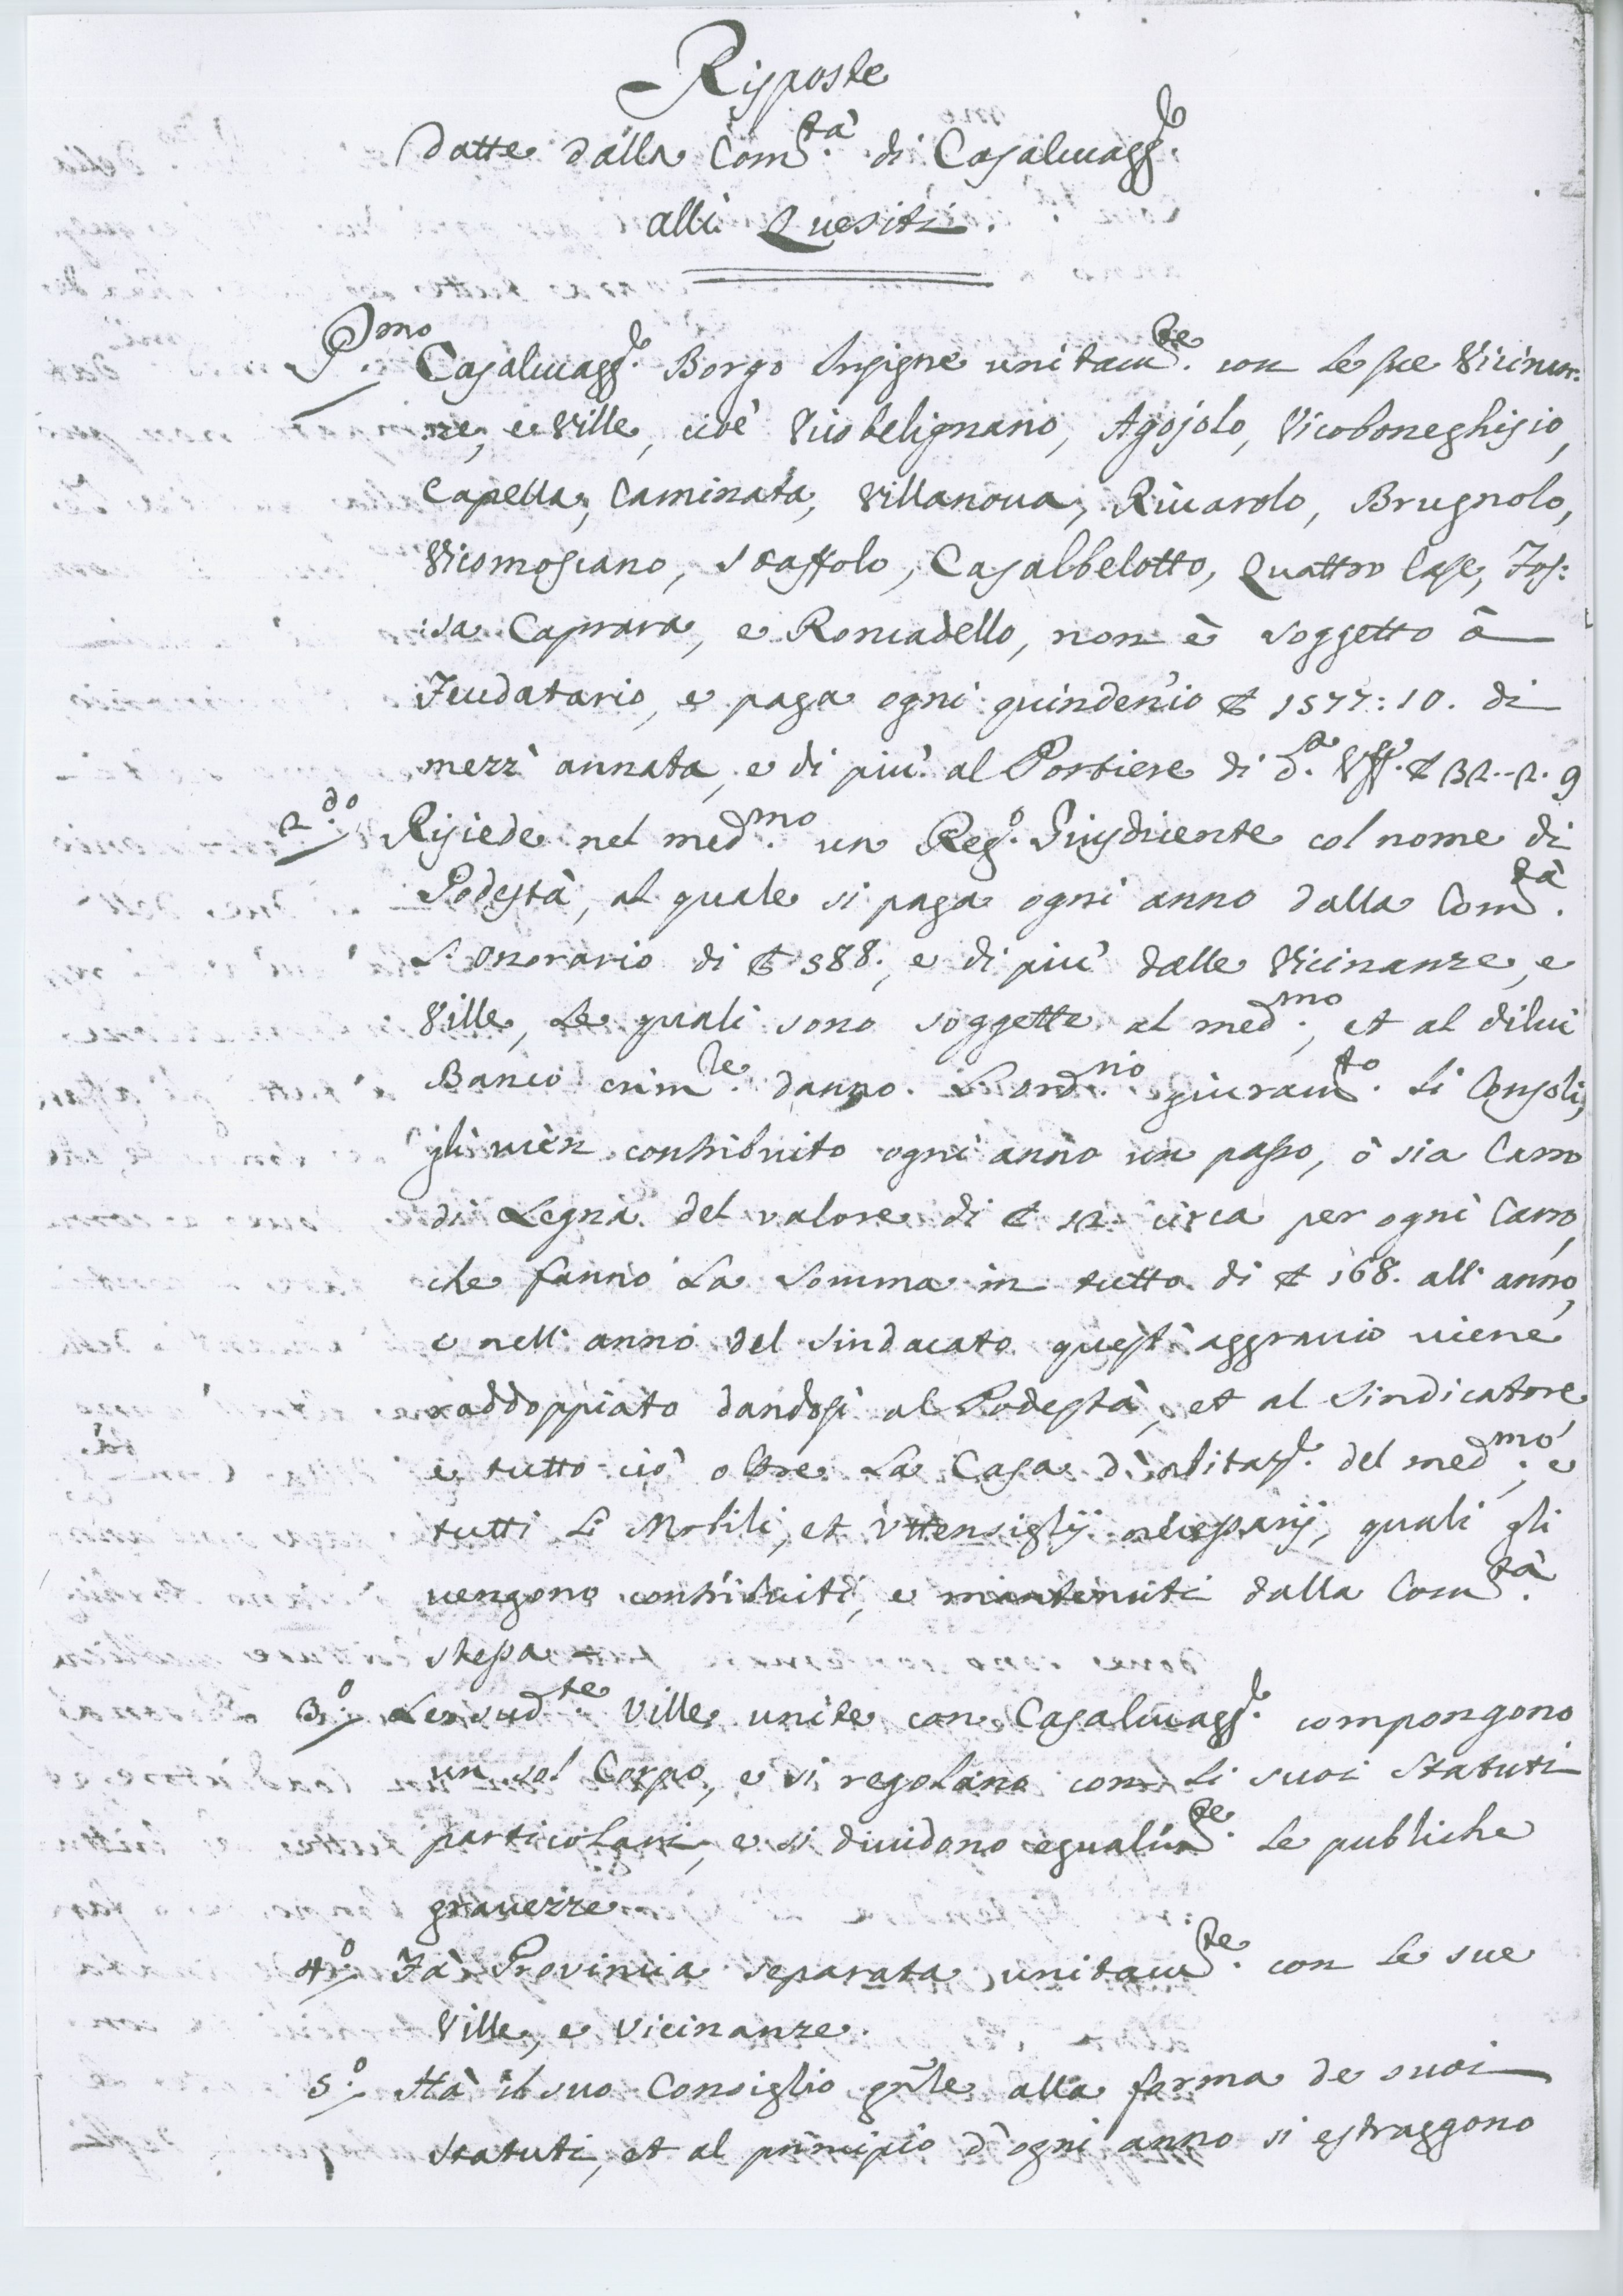 Risposte
datte dalla Com.tà di Casalmagg.e
alli Quesiti.
P.mo Casalmagg.e Borgo Insigne unitam.te con le sue Vicinan:
ze, e Ville, cioè Vicobelignano, Agojolo, Vicoboneghisio,
Capella, Caminata, Villanova, Rivarolo, Brugnolo,
Vicomoscano, Staffolo, Casalbelotto, Quattro Case, Fos:
:sa Caprara, e Roncadello, non è soggetto à
Feudatario, e paga ogni quindenio £ 1577:10. di
mezz' annata, e di più al Portiere di d.o Uff.o £ 32..2.9
2.do Risiede nel med.mo un Reg.o Giusdicente col nome di
Podestà, al quale si paga ogni anno dalla Com.tà
L'onorario di £ 588., e di più dalle Vicinanze, e
Ville, le quali sono soggette al med.mo, et al dilui
Banco crim.le danno. L'ord.no giuram.to li Consoli,
gli vien contribuito ogni anno un passo, ò sia Carro
di Legna del valore di £ 12. circa per ogni Carro,
che fanno la somma in tutto di £ 168. all' anno,
e nell' anno del sindacato quest' aggravio viene
raddoppiato dandosi al Podestà, et al Sindicatore
e tutto ciò oltre la Casa d'abitaz.e del med.mo, e
tutti li Mobili, et Uttensiglij necessarij, quali gli
vengono contribuiti, e mantenuti dalla Com.tà
stessa
3.o Le sud.te Ville unite con Casalmagg.e compongono
un sol Corpo, e si regolano con li suoi Statuti
particolari, e si dividono egualm.te le publiche
gravezze
4.o Fà Provincia separata unitam.te con le sue
Ville, e Vicinanze.
5.o Hà il suo Consiglio gñle alla forma de suoi
Statuti, et al principio d'ogni anno si estraggono